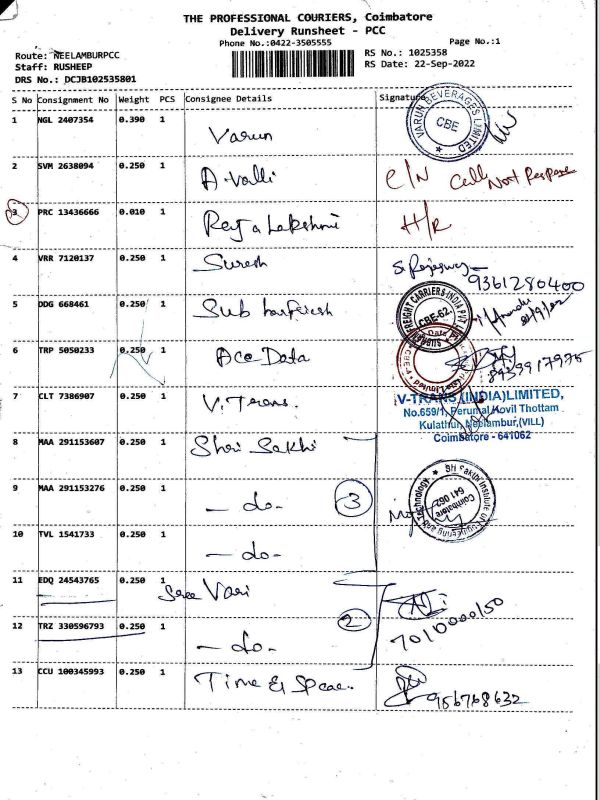 THE PROFESSIONAL COURIERS, Coimbatore
Delivery Runsheet - PCC
Phone No.:0422-3505555
Page No.:1
Route: NEELAMBURPCC
RS No.: 1025358
Staff: RUSHEEP
RS Date: 22-Sep-2022
DRS No.: DCJB102535801
S No Consignment No Weight PCS Consignee Details Signature
1 NGL 2407354 0.390 1 Varun
VARUN BEVERAGES LIMITED
CBE
2 SVM 2638094 0.250 1 A. Valli C/N Call Not Response
3 PRC 13436666 0.010 1 Raja Lakshmi H/R
4 VRR 7120137 0.250 1 Suresh
9361280400
5 DDG 668461 0.250 1 Sub
FREIGHT CARRIERS INDIA PVT
CBE-62
6 TRP 5050233 0.250 1 Ace Data
8939917975
7 CLT 7386907 0.250 1 V. Trans.
V-TRANS (INDIA) LIMITED,
No.659/1, Perumal Kovil Thottam
Kulathur, Neelambur,(VILL)
Coimbatore - 641062
8 MAA 291153607 0.250 1 Shri Sakthi
9 MAA 291153276 0.250 1 - do- 3
Sri Sakthi Institute of Engineering and Technology
Coimbatore
641 062
10 TVL 1541733 0.250 1 - do-
11 EDQ 24543765 0.250 1 Sree Vari
12 TRZ 330596793 0.250 1 - do- 2
7010000150
13 CCU 100345993 0.250 1 Time & Space.
956768632